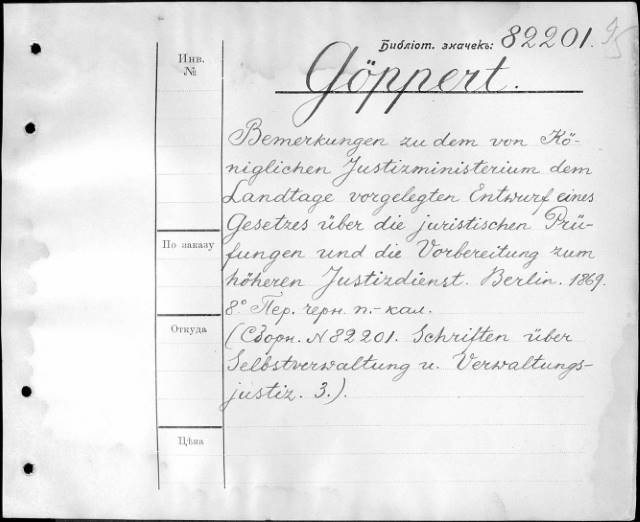 Библіот. значекъ: 82201.
95
Инв.
№
Göppert.
Bemerkungen zu dem von Kö-
niglichen Justizministerium dem
Landtage vorgelegten Entwurf eines
Gesetzes über die juristischen Prü-
fungen und die Vorbereitung zum
höheren Justizdienst. Berlin. 1869.
8° Пер. черн. п.-кал.
(Сборн. N 82201. Schriften über
Selbstverwaltung u. Verwaltungs-
justiz. 3.).
По заказу
Откуда
Цѣна